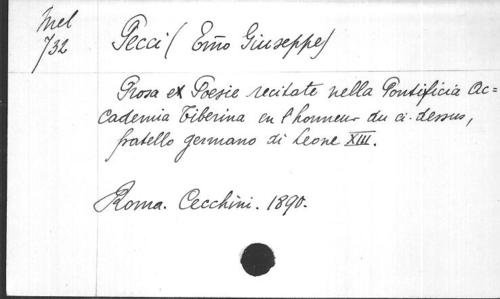 Mel
732
Pecci (Emo Giuseppe)
Prosa et Poesie recitate nella Pontificia Ac=
cademia Tiberina en l'honneur du ci-dessus,
fratello germano di Leone XIII.
Roma. Cecchini. 1890.